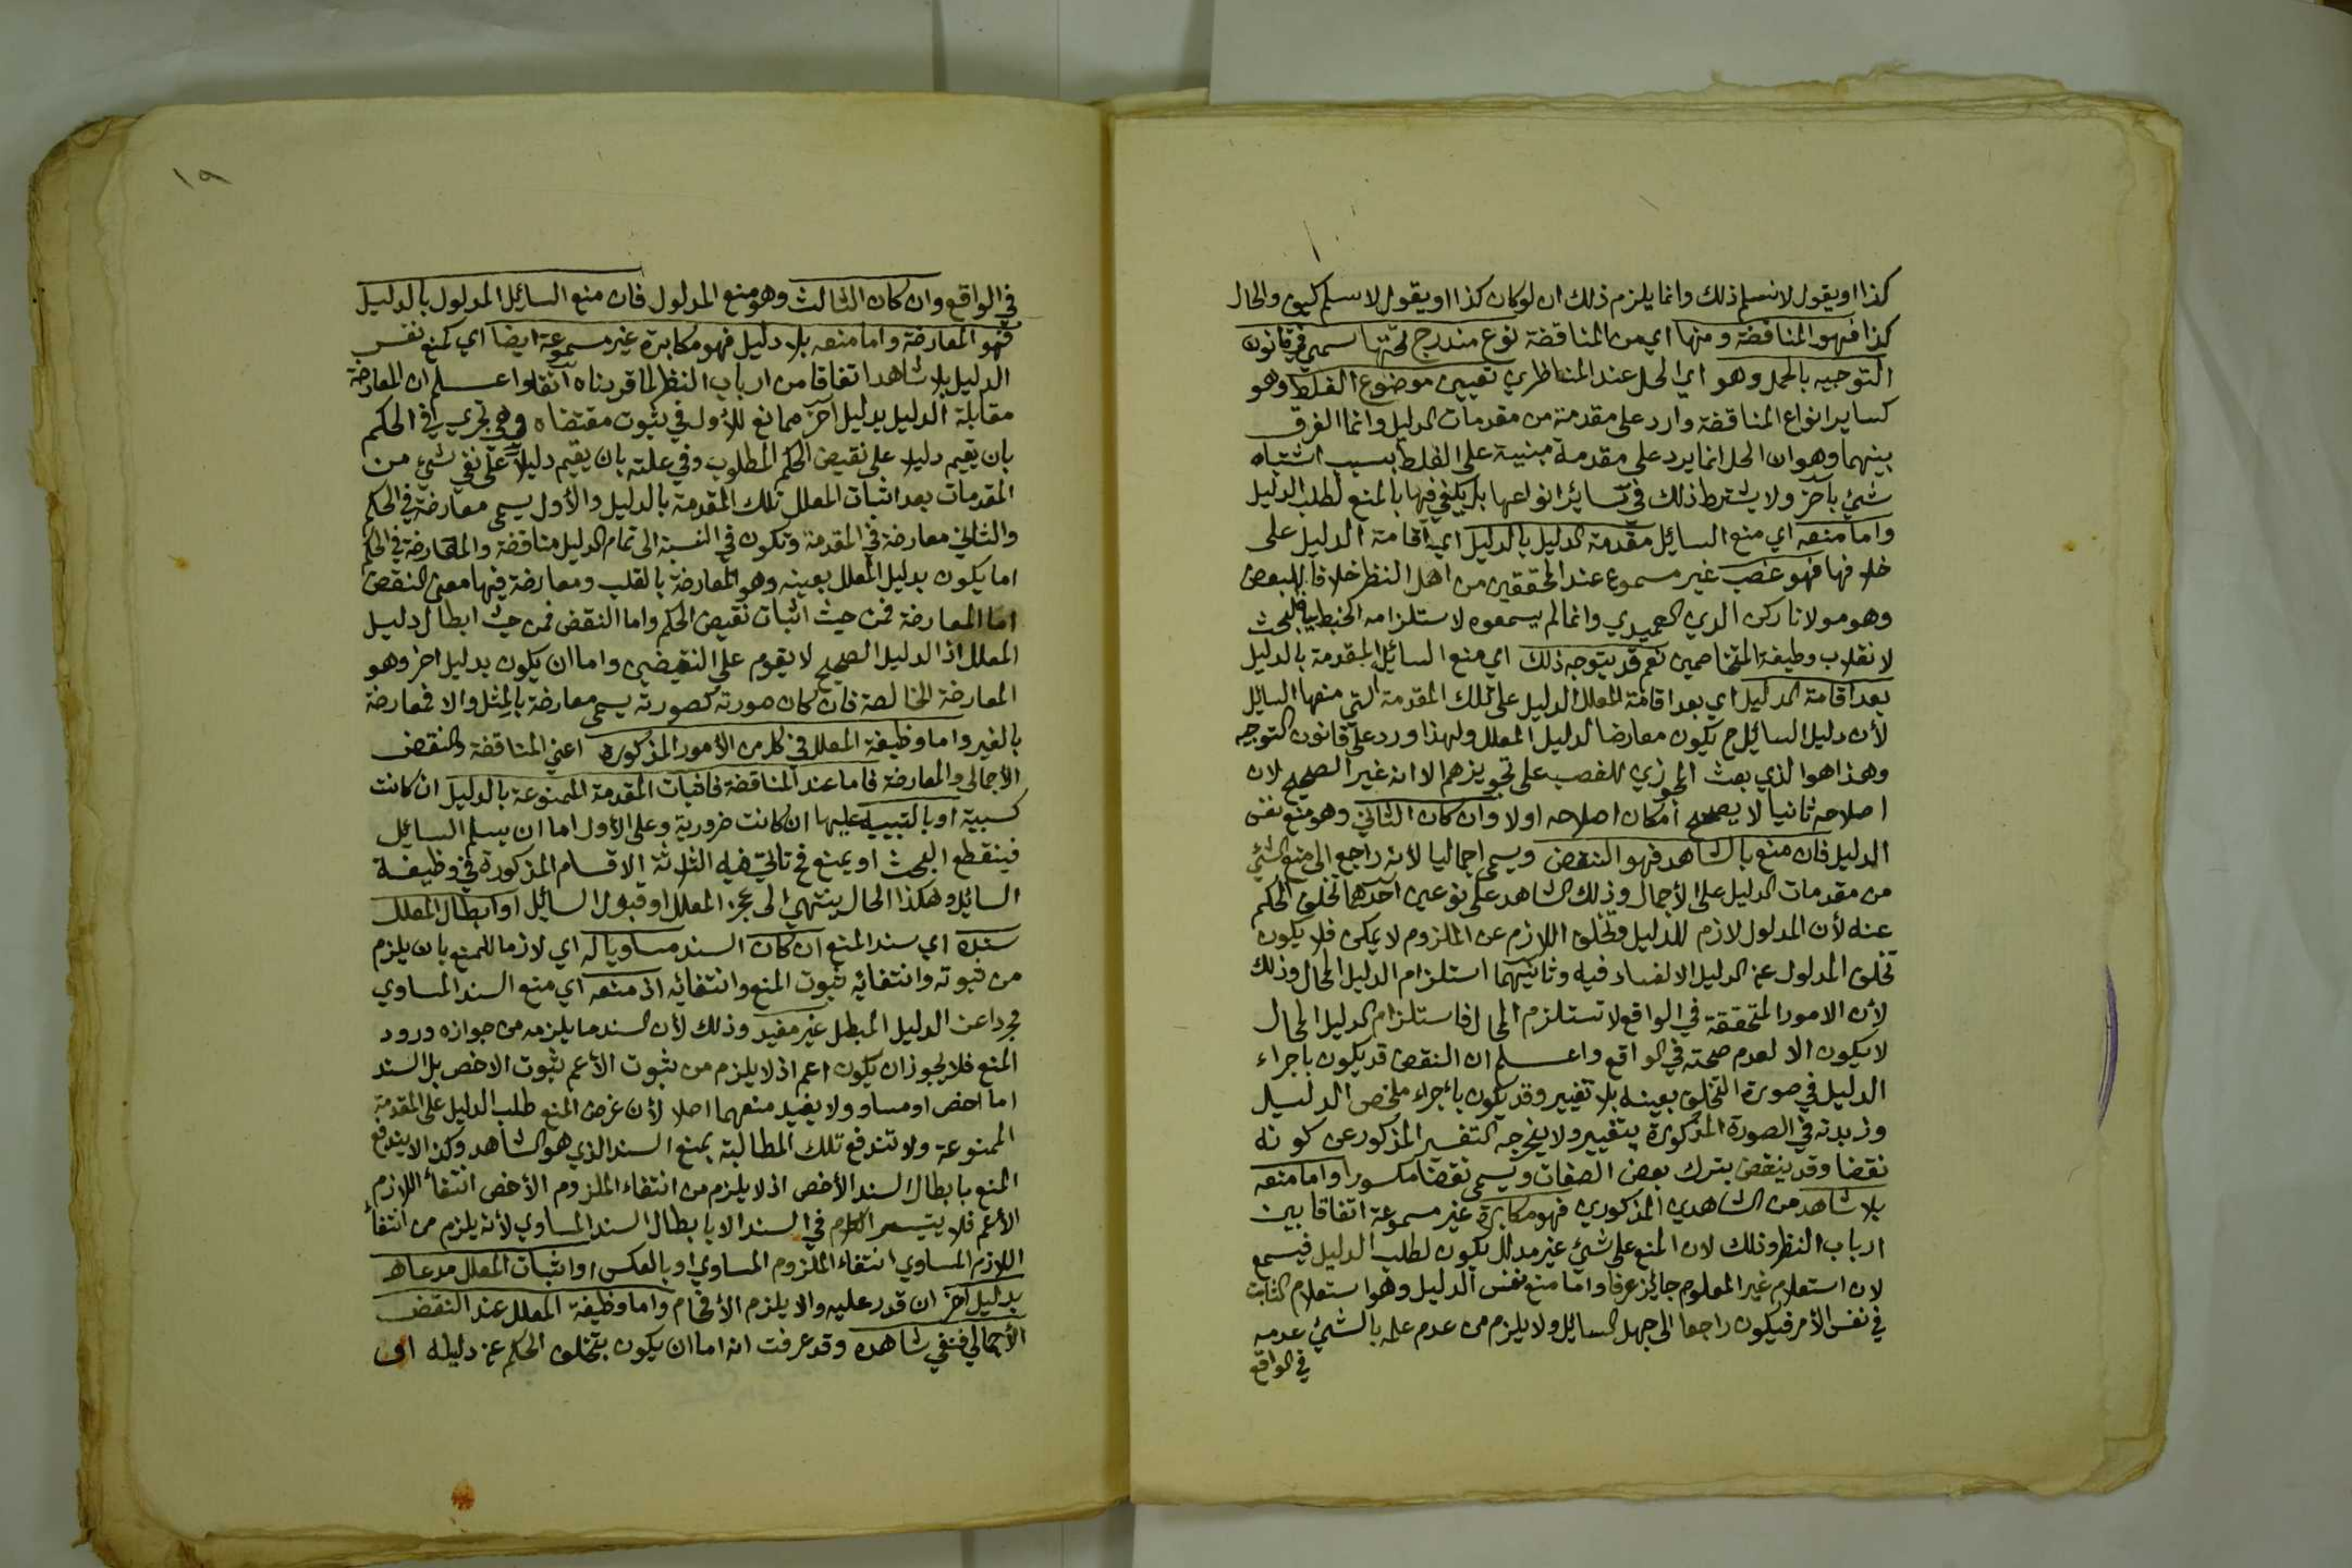 كذا او يقول لا نسلم ذلك وانما يلزم ذلك ان لو كان كذا او يقول لا نسلم كيف والحال
كذا فهو المناقضة ومنها اي من المناقضة نوع مندرج تحتها سمي في قانون
التوجيه بالحل وهو اي الحل عند المناظرين تعيين موضوع الغلط وهو
كساير انواع المناقضة وارد على مقدمة من مقدمات الدليل وانما الفرق
بينهما وهو ان الحل انما يرد على مقدمة مبنية على الغلط بسبب اشتباه
شئ بآخر ولا يشترط ذلك في سائر انواعها بل يكفي فيها بالمنع لطلب الدليل
واما منعه اي منع السائل مقدمة الدليل بالدليل اي اقامة الدليل على
خلافها فهو غصب غير مسموع عند المحققين من اهل النظر خلافا للبعض
وهو مولانا ركن الدين العميدي وانما لم يسمعوه لاستلزامه الخبط في البحث
لانقلاب وظيفة المتخاصمين نعم قد يتوجه ذلك اي منع السائل المقدمة بالدليل
بعد اقامة الدليل اي بعد اقامة المعلل الدليل على تلك المقدمة التي منعها السائل
لأن دليل السائل ح يكون معارضا لدليل المعلل ولهذا ورد على قانون التوجيه
وهذا هو الذي بعث المجوزين للغصب على تجويزهم الا انه غير الصحيح لان
اصلاحه ثانيا لا يصحح امكان اصلاحه اولا وان كان الثاني وهو منع نفس
الدليل فان منع بالشاهد فهو النقض ويسمى اجماليا لأنه راجع الى منع شئ
من مقدمات الدليل على الأجمال وذلك الشاهد على نوعين احدهما تخلف الحكم
عنه لأن المدلول لازم للدليل وتخلف اللازم عن الملزوم لا يمكن فلا يكون
تخلف المدلول عن الدليل الا لفساد فيه وثانيهما استلزام الدليل المحال وذلك
لأن الامور المتحققة في الواقع لا تستلزم المحال فاستلزام الدليل المحال
لا يكون الا لعدم صحته في الواقع واعلم ان النقض قد يكون باجراء
الدليل في صورة التخلف بعينه بلا تغيير وقد يكون باجراء ملخص الدليل
وزبدته في الصورة المذكورة بتغيير ولا يخرجه التفسير المذكور عن كونه
نقضا وقد ينقض بترك بعض الصفات ويسمى نقضا مكسورا واما منعه
بلا شاهد من الشاهدين المذكورين فهو مكابرة غير مسموعة اتفاقا بين
ارباب النظر وذلك لان المنع على شئ غير مدلل يكون لطلب الدليل فيسمع
لان استعلام غير المعلوم جائز عرفا واما منع نفس الدليل وهو استعلام الثابت
في نفس الأمر فيكون راجعا الى جهل السائل ولا يلزم من عدم علمه بالشئ عدمه
في الواقع
١٩
في الواقع وان كان الثالث وهو منع المدلول فان منع السائل المدلول بالدليل
فهو المعارضة واما منعه بلا دليل فهو مكابرة غير مسموعة ايضا اي كمنع نفس
الدليل بلا شاهد اتفاقا من ارباب النظر لما قررناه آنفا واعلم ان المعارضة
مقابلة الدليل بدليل آخر ممانع للأول في ثبوت مقتضاه وهي تجري في الحكم
بان تقيم دليلا على نقيض الحكم المطلوب وفي علته بان يقيم دليلا على نفي شئ من
المقدمات بعد اثبات المعلل تلك المقدمة بالدليل والأول يسمى معارضة في الحكم
والثاني معارضة في المقدمة وتكون في النسبة الى تمام الدليل مناقضة والمعارضة في الحكم
اما يكون بدليل المعلل بعينه وهو المعارضة بالقلب ومعارضة فيها معنى النقض
اما المعارضة فمن حيث اثبات نقيض الحكم واما النقض فمن حيث ابطال دليل
المعلل اذ الدليل الصحيح لا يقوم على النقيضين واما ان يكون بدليل اخر وهو
المعارضة الخالصة فان كان صورته كصورته يسمى معارضة بالمثل والا فمعارضة
بالغير واما وظيفة المعلل في كل من الأمور المذكورة اعني المناقضة والنقض
الأجمالي والمعارضة فاما عند المناقضة فاثبات المقدمة الممنوعة بالدليل ان كانت
كسبية او بالتنبيه عليها ان كانت ضرورية وعلى الأول اما ان يسلم السائل
فينقطع البحث او يمنع فح تاتي فيه الثلاثة الاقسام المذكورة في وظيفة
السائل وهكذا الحال ينتهي الى عجز المعلل او قبول السائل او ابطال المعلل
سنده اي سند المنع ان كان السند مساويا له اي لازما للمنع بان يلزم
من ثبوته وانتفائه ثبوت المنع وانتفائه اذ منعه اي منع السند المساوي
مجردا عن الدليل المبطل غير مفيد وذلك لأن السند ما يلزمه من جوازه ورود
المنع فلا يجوز ان يكون اعم اذ لا يلزم من ثبوت الأعم ثبوت الاخص بل السند
اما اخص او مساو ولا يفيد منعهما اصلا لأن غرض المنع طلب الدليل على المقدمة
الممنوعة ولا تندفع تلك المطالبة بمنع السند الذي هو الشاهد وكذا لا يندفع
المنع بابطال السند الأخص اذ لا يلزم من انتفاء الملزوم الأخص انتفاء اللازم
الأعم فلا يتيسر الكلام في السند الا بابطال السند المساوي لأنه يلزم من انتفاء
اللازم المساوي انتفاء الملزوم المساوي او بالعكس او اثبات المعلل مدعاه
بدليل آخر ان قدر عليه والا يلزم الأفحام واما وظيفة المعلل عند النقض
الأجمالي فنفي شاهده وقد عرفت انه اما ان يكون بتخلف الحكم عن دليله او